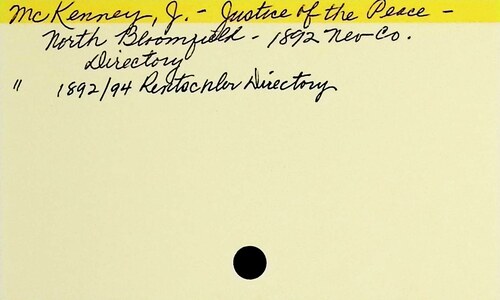 McKenney, J. - Justice of the Peace -
North Bloomfield - 1892 Nev Co.
Directory
" 1892/94 Rentschler Directory